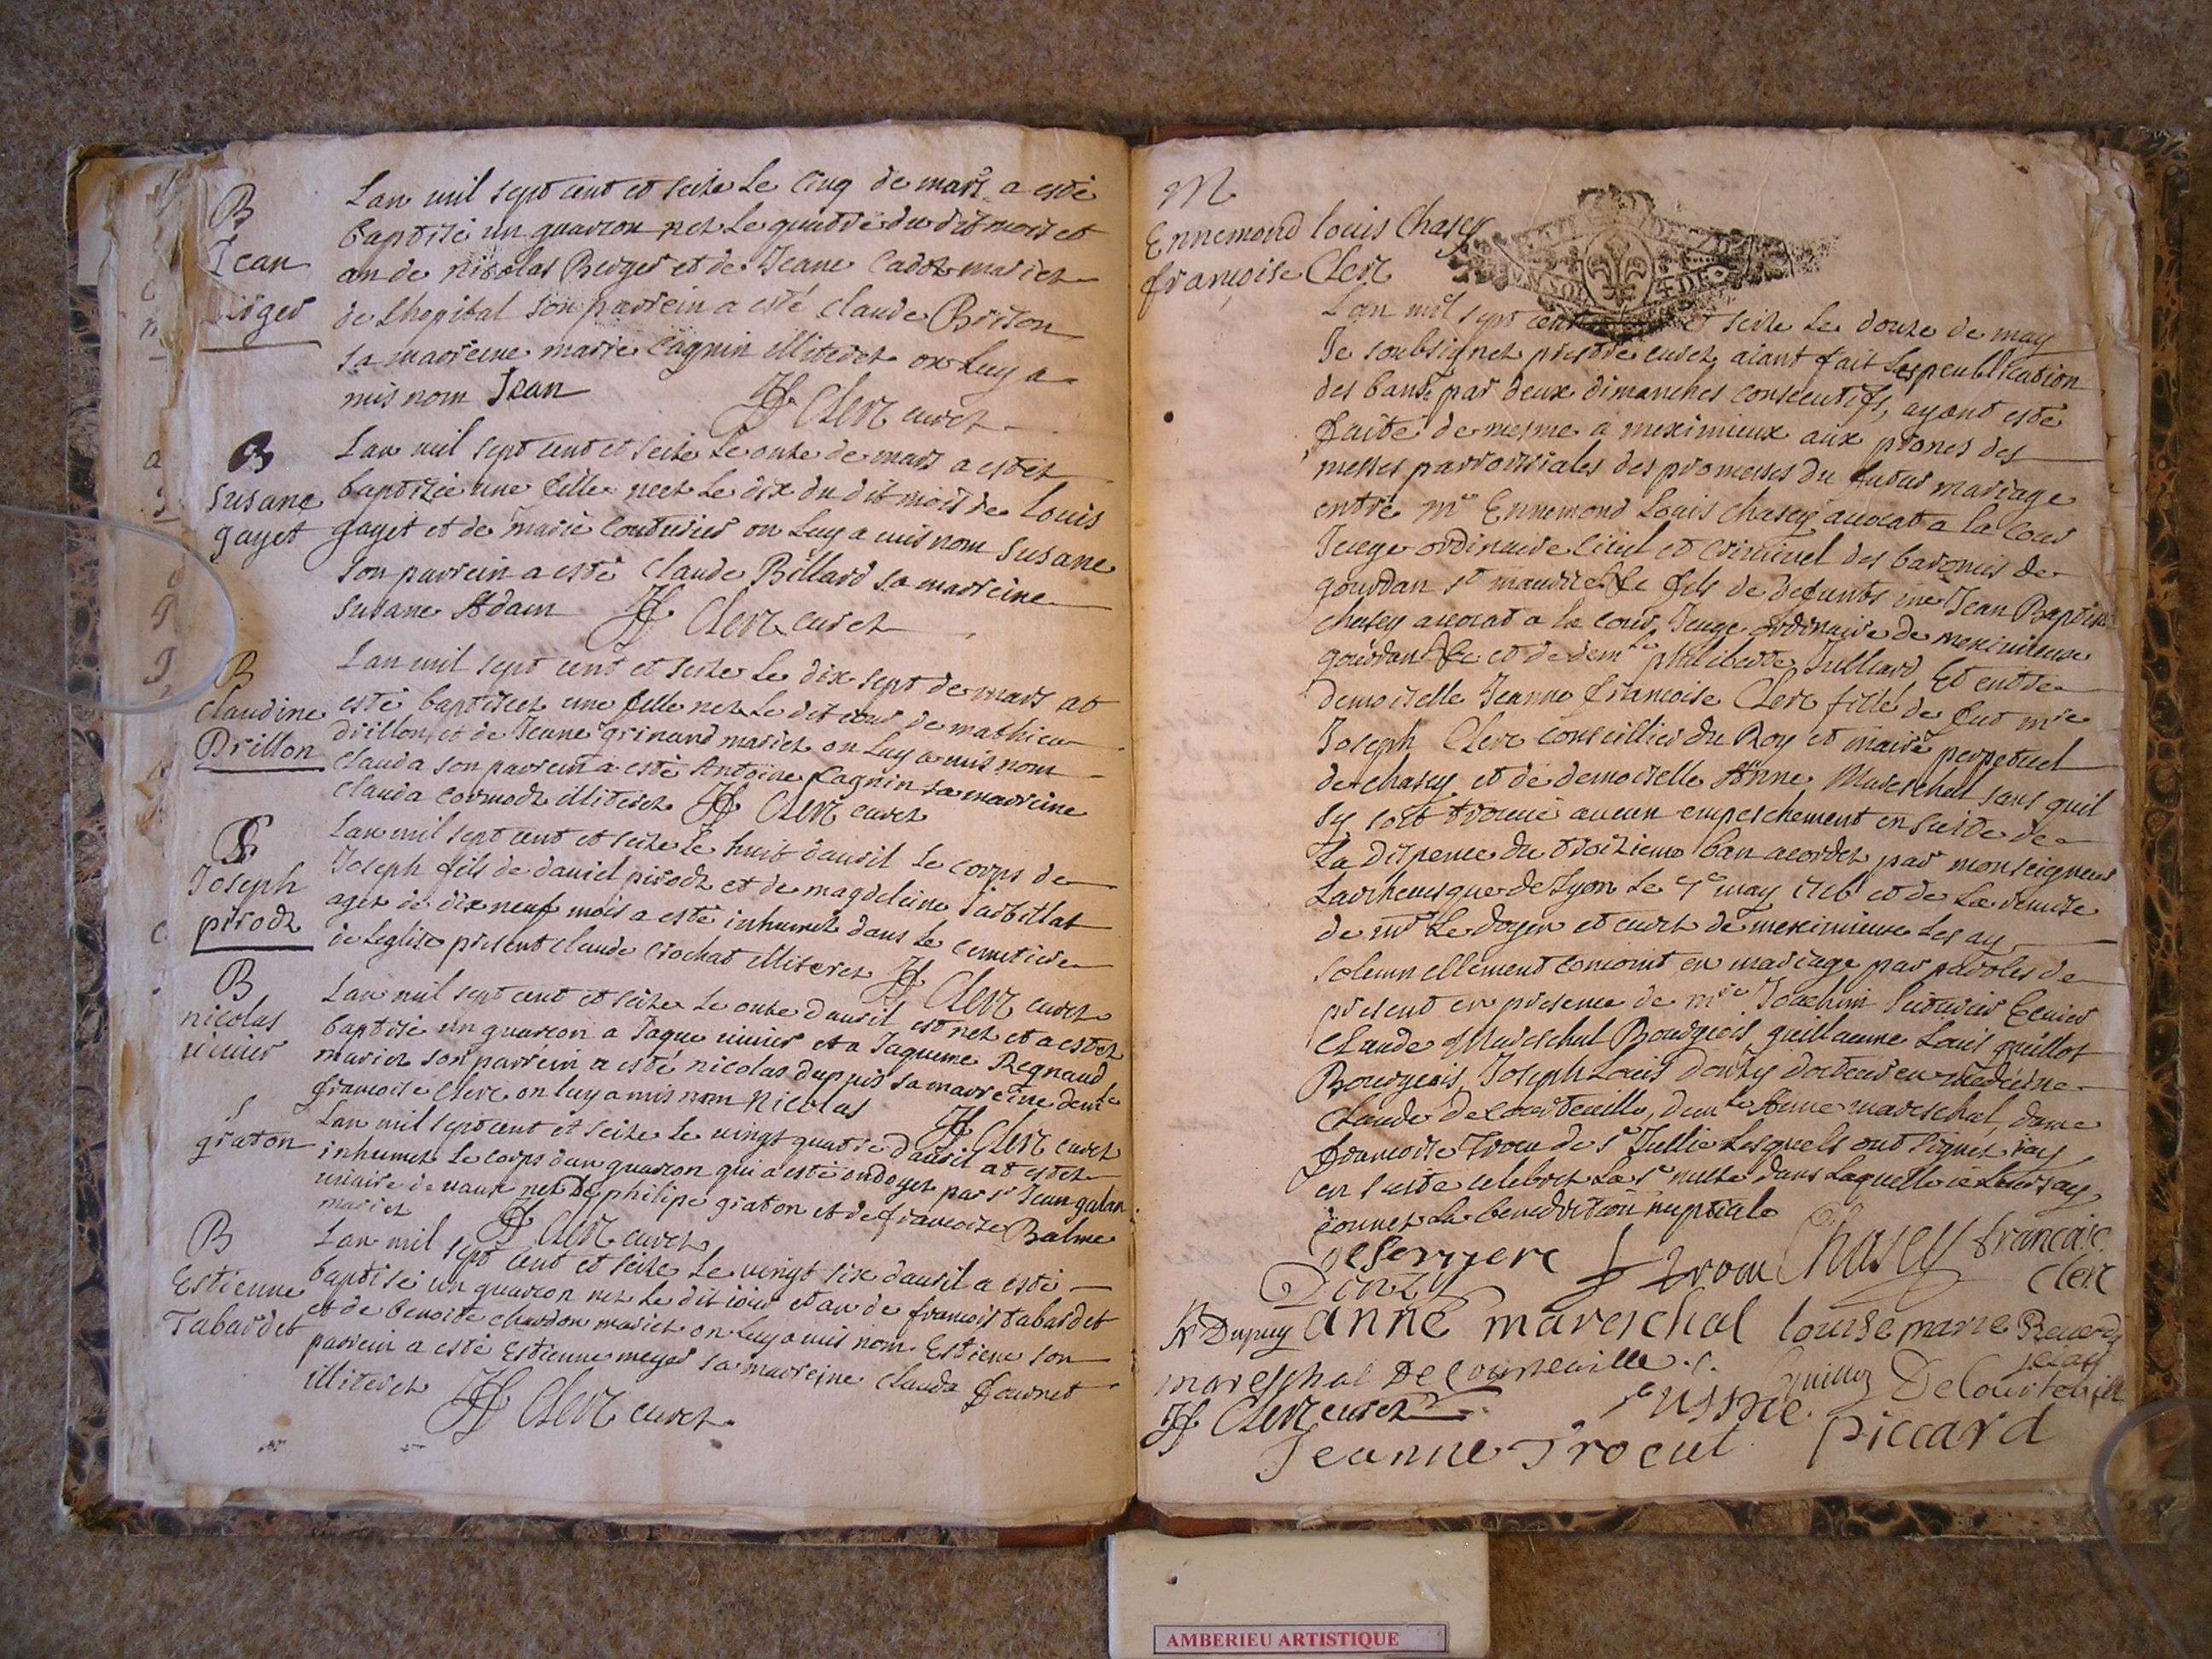 B
Jean
Lan mil sept cent et seize le cinq de mars a esté
baptisé un guarcon nez le quatre du dit mois et
an de nicolas Berger et de Jeane Cadoz mariez
de Lhopital son parrein a esté claude Brison
sa marreine marie Cagnin illiterez on luy a
mis nom Jean
Clerc curez
B
susane
gayet
Lan mil sept cent et seize le onze de mars a estez
baptizée une fille neez le dix du dit mois de Louis
gayet et de marie couturier on luy a mis nom susane
son parrein a esté claude Billard sa marreine
susane Adam Clerc curez
B
Claudine
Drillon
Lan mil sept cent et seize le dix sept de mars at
esté baptisez une fille nez le dit iour de mathieu
drillon et de Jeane grinand mariez on luy a mis nom
clauda son parrein a esté Antoine Cagnin sa marreine
clauda cormodz illiterez Clerc curez
S
Joseph
pirodz
Lan mil sept cent et seize le huit dauril le corps de
Joseph fils de daniel pirodz et de magdeleine
agez de dix neuf mois a esté inhumez dans le cemetiere
de Leglise present claude crochat illiterez Clerc curez
B
nicolas
uiuier
Lan mil sept cent et seize le onze dauril est nez et a estez
baptisé un guarcon a Jaque uiuier et a Jaqueme Regnaud
mariez son parrein a esté nicolas dupuis sa marreine demle
francoise clerc on luy a mis nom nicolas Clerc curez
S
graton
Lan mil sept cent et seize le uingt quatre dauril at estez
inhumez le corps dun guarcon qui a esté ondoyez par sr Jean galan
uicaire de uaux nez de philipe graton et de francoise Balme
mariez Clerc curez
B
Estienne
Tabardet
Lan mil sept cent et seize le uingt six dauril a esté
baptisé un guarcon nez le dit iour et an de francois tabardet
et de benoite chardon mariez on luy a mis nom Estiene son
parrein a esté Estienne meyer sa marreine clauda fournet
illiterez Clerc curez
M
Ennemond louis Chasey
francoise Clerc
Lan mil sept cent et seize le douze de may
Je soubsignez prestre curez aiant fait les peublication
des bans par deux dimanches consecutifs, ayant esté
faite de mesme a meximieux aux prones des
messes parroissiales des promesses du futur mariage
entre mre Ennemond Louis chasey auocat a la cour
Jeuge ordinaire ciuil et criminel des baronies de
gourdan st maurice &c fils de defunts mre Jean Baptiste
chasey auocat a la cour Jeuge ordinaire de meximieux
gourdan &c et de demlle philiberte Julliard Et entre
demoiselle Jeanne francoise Clerc fille de feu mre
Joseph Clerc conseillier du Roy et maire perpetuel
de chasey et de demoiselle Anne Mareschal sans quil
sy soit trouué aucun empeschement en suite de
la dispence du troizieme ban acordez par monseigneur
Larcheuesque de Lyon le 7e may 1716 et de la remise
de mr le doyen et curez de meximieux les ay
solemnellement conioint en mariage par paroles de
present en presence de mre Joachim Ecuier
claude Mareschal Bourgeois guillaume Louis guillot
Bourgeois, Joseph Louis docteur en medecine
claude de Courteuille, demlle Anne mareschal, dame
francoise Trocu de st Jullie lesquels ont signez iay
en suite celebrez la ste messe dans laquelle ie leur ay
donnez la benediction nuptiale
Chasey francoise
Clerc
Dupuy anne mareschal louise marie
mareschal De Courteuille Guilloz De Courteuille
Clerc curez
Jeanne Trocut piccard
AMBERIEU ARTISTIQUE